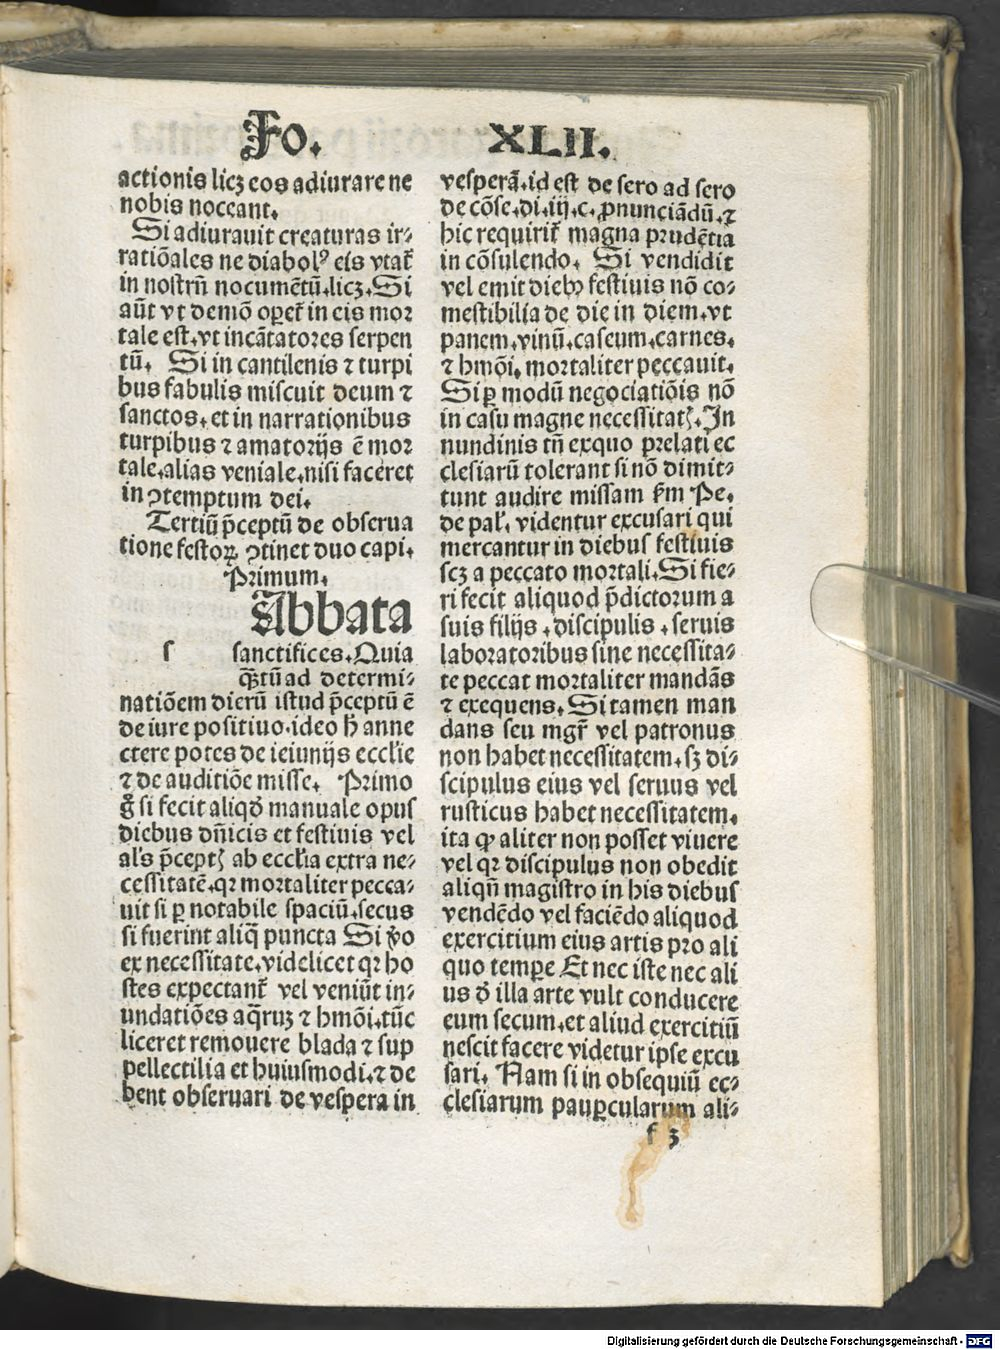 Fo. XLII.
actionis licꝫ eos adiurare ne
nobis noceant.
Si adiurauit creaturas ir⸗
ratiōales ne diabolꝰ eis vtat᷑
in nostrū nocumētū.licꝫ.Si
aūt vt demō oꝑet᷑ in eis mor
tale est.vt incātatores serpen
tū. Si in cantilenis ⁊ turpi
bus fabulis miscuit deum ⁊
sanctos.et in narrationibus
turpibus ⁊ amatorijs ē mor
tale.alias veniale.nisi faceret
in ꝯtemptum dei.
Tertiū p̄ceptū de obserua
tione festoꝝ ꝯtinet duo capi.
Primum.
Abbata
s sanctifices.Quia
q̄tū ad determi⸗
natiōem dierū istud p̄ceptū ē
de iure positiuo.ideo h̄ anne
ctere potes de ieiunijs eccl̄ie
⁊ de auditiōe misse. Primo
g̊ si fecit aliqd̄ manuale opus
diebus dn̄icis et festiuis vel
al̄s p̄ceptꝭ ab eccl̄ia extra ne⸗
cessitatē.qꝛ mortaliter pecca⸗
uit si ꝑ notabile spaciū.secus
si fuerint aliq̄ puncta Si v̊o
ex necessitate.videlicet qꝛ ho
stes expectant᷑ vel veniūt in⸗
undatiōes aq̄ruꝫ ⁊ hmōi.tūc
liceret remouere blada ⁊ sup
pellectilia et huiusmodi.⁊ de
bent obseruari de vespera in
vesperā.id est de sero ad sero
de cōse.di.iij.c.ꝓnunciādū.⁊
hic requirit᷑ magna prudētia
in cōsulendo. Si vendidit
vel emit diebꝫ festiuis nō co⸗
mestibilia de die in diem.vt
panem.vinū.caseum.carnes.
⁊ hmōi.mortaliter peccauit.
Si ꝑ modū negociatiōis nō
in casu magne necessitatꝭ.In
nundinis tn̄ exquo prelati ec
clesiarū tolerant si nō dimit⸗
tunt audire missam s̄m Pe.
de pal̄. videntur excusari qui
mercantur in diebus festiuis
scꝫ a peccato mortali.Si fie⸗
ri fecit aliquod p̄dictorum a
suis filijs .discipulis .seruis
laboratoribus sine necessita⸗
te peccat mortaliter mandās
⁊ exequens. Si tamen man
dans seu mgr̄ vel patronus
non habet necessitatem.sꝫ di⸗
scipulus eius vel seruus vel
rusticus habet necessitatem.
ita ꝙ aliter non posset viuere
vel qꝛ discipulus non obedit
aliqn̄ magistro in his diebus
vendēdo vel faciēdo aliquod
exercitium eius artis pro ali
quo tempore Et nec iste nec ali
us d̄ illa arte vult conducere
eum secum.et aliud exercitiū
nescit facere videtur ipse excu
sari. Nam si in obsequiū ec⸗
clesiarum pauꝑcularum ali⸗
f 3
Digitalisierung gefördert durch die Deutsche Forschungsgemeinschaft - DFG